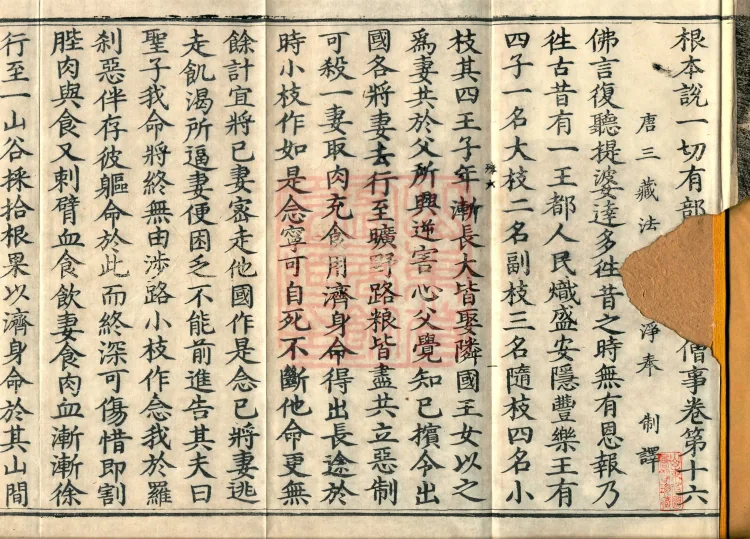 根本說一切有部僧事卷第十六
唐三藏法淨奉 制譯
佛言復聽提婆達多徃昔之時無有恩報乃
徃古昔有一王都人民熾盛安隱豐樂王有
四子一名大枝二名副枝三名隨枝四名小
枝其四王子年漸長大皆娶隣國王女以之
爲妻共於父所興逆害心父覺知已擯令出
國各將妻去行至曠野路粮皆盡共立惡制
可殺一妻取肉充食用濟身命得出長途於
時小枝作如是念寧可自死不斷他命更無
餘計宜將已妻密走他國作是念已將妻逃
走飢渴所逼妻便困乏不能前進告其夫曰
聖子我命將終無由涉路小枝作念我於羅
刹惡伴存彼軀命於此而終深可傷惜即割
䏶肉與食又刺臂血食飲妻食肉血漸漸徐
行至一山谷採拾根果以濟身命於其山間